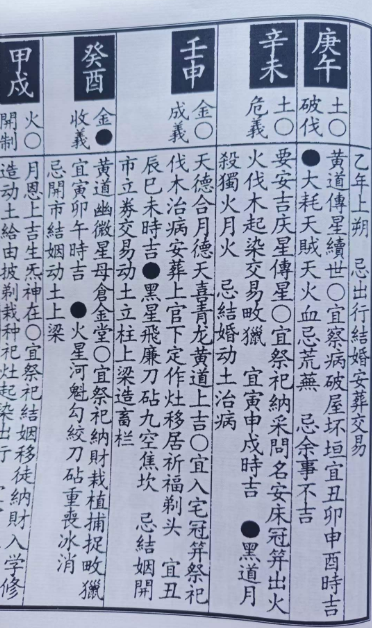 乙年上朔　忌出行结婚安葬交易
庚午
土○破伐
黄道傳星續世○宜察病破屋坏垣宜丑卯申酉時吉
●大耗天賊天火血忌荒無　忌余事不吉
辛未
土○危義
要安吉庆星傳星○宜祭祀纳采問名安床冠笄出火
火伐木起染交易畋獵　宜寅申戌時吉　●黑道月
殺獨火月火　忌结婚动土治病
壬申
金○成義
天德合月德天喜青龙黄道上吉○宜入宅冠笄祭祀
伐木治病安葬上官下定作灶移居祈福剃头　宜丑
辰巳未時吉●黑星飛廉刀砧九空焦坎　忌結姻開
市立券交易动土立柱上梁造畜栏
癸酉
金●收義
黄道幽微星母倉金堂○宜祭祀纳財栽植捕捉畋獵
宜寅卯午時吉　●火星河魁勾絞刀砧重喪冰消
忌開市結姻动土上梁
甲戌
火○開制
月恩上吉生炁神在○宜祭祀結姻移徒纳財入学修
造动土給由披剃栽种祀灶起染出行